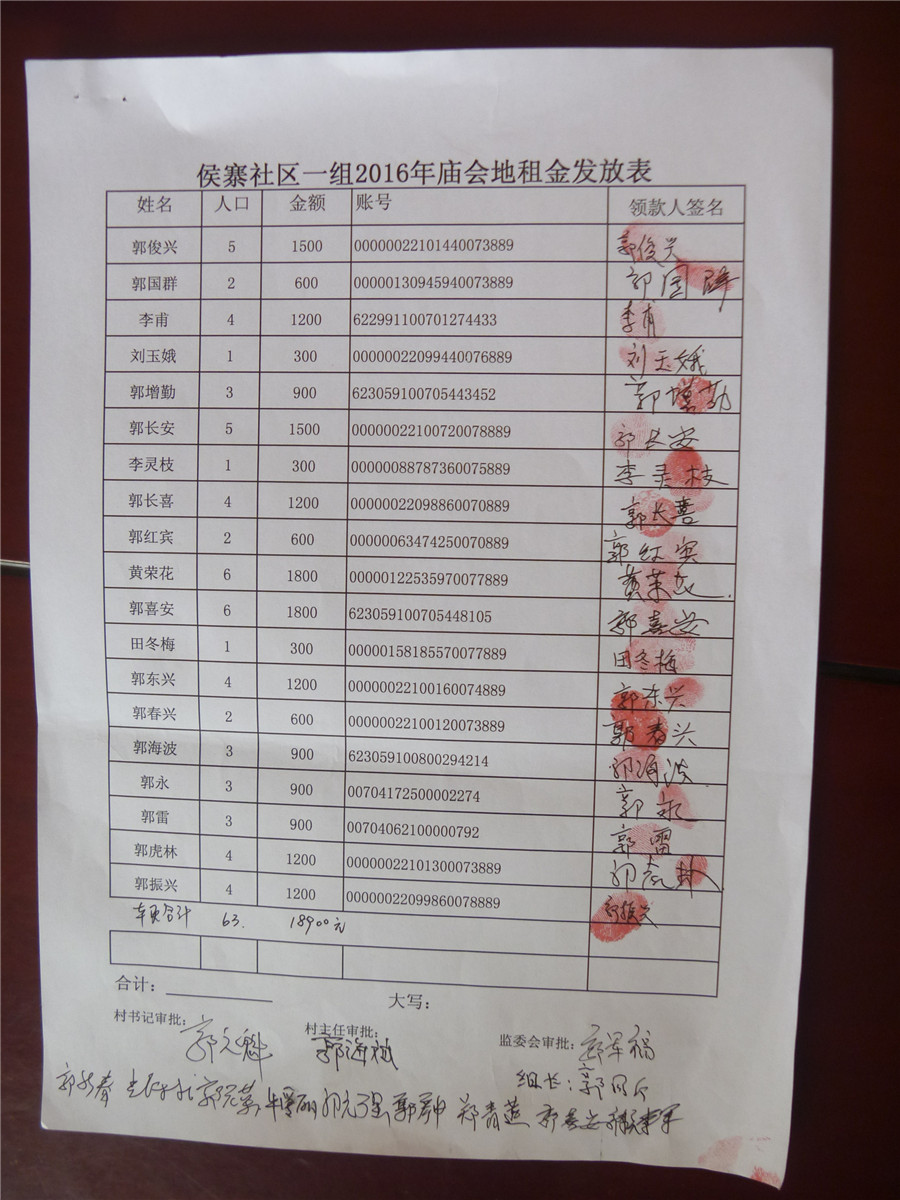 侯寨社区一组2016年庙会地租金发放表
姓名 人口 金额 账号 领款人签名
郭俊兴 5 1500 00000022101440073889 郭俊兴
郭国群 2 600 00000130945940073889 郭国群
李甫 4 1200 622991100701274433 李甫
刘玉娥 1 300 00000022099440076889 刘玉娥
郭增勤 3 900 623059100705443452 郭增勤
郭长安 5 1500 00000022100720078889 郭长安
李灵枝 1 300 00000088787360075889 李灵枝
郭长喜 4 1200 00000022098860070889 郭长喜
郭红宾 2 600 00000063474250070889 郭红宾
黄荣花 6 1800 00000122535970077889 黄荣花
郭喜安 6 1800 623059100705448105 郭喜安
田冬梅 1 300 00000158185570077889 田冬梅
郭东兴 4 1200 00000022100160074889 郭东兴
郭春兴 2 600 00000022100120073889 郭春兴
郭海波 3 900 623059100800294214 郭海波
郭永 3 900 00704172500002274 郭永
郭雷 3 900 00704062100000792 郭雷
郭虎林 4 1200 00000022101300073889 郭虎林
郭振兴 4 1200 00000022099860078889 郭振兴
本页合计 63. 18900元
合计： 大写：
村书记审批： 郭元魁 村主任审批： 郭海斌 监委会审批： 郭军福
组长：郭
郑青莲 郭喜安